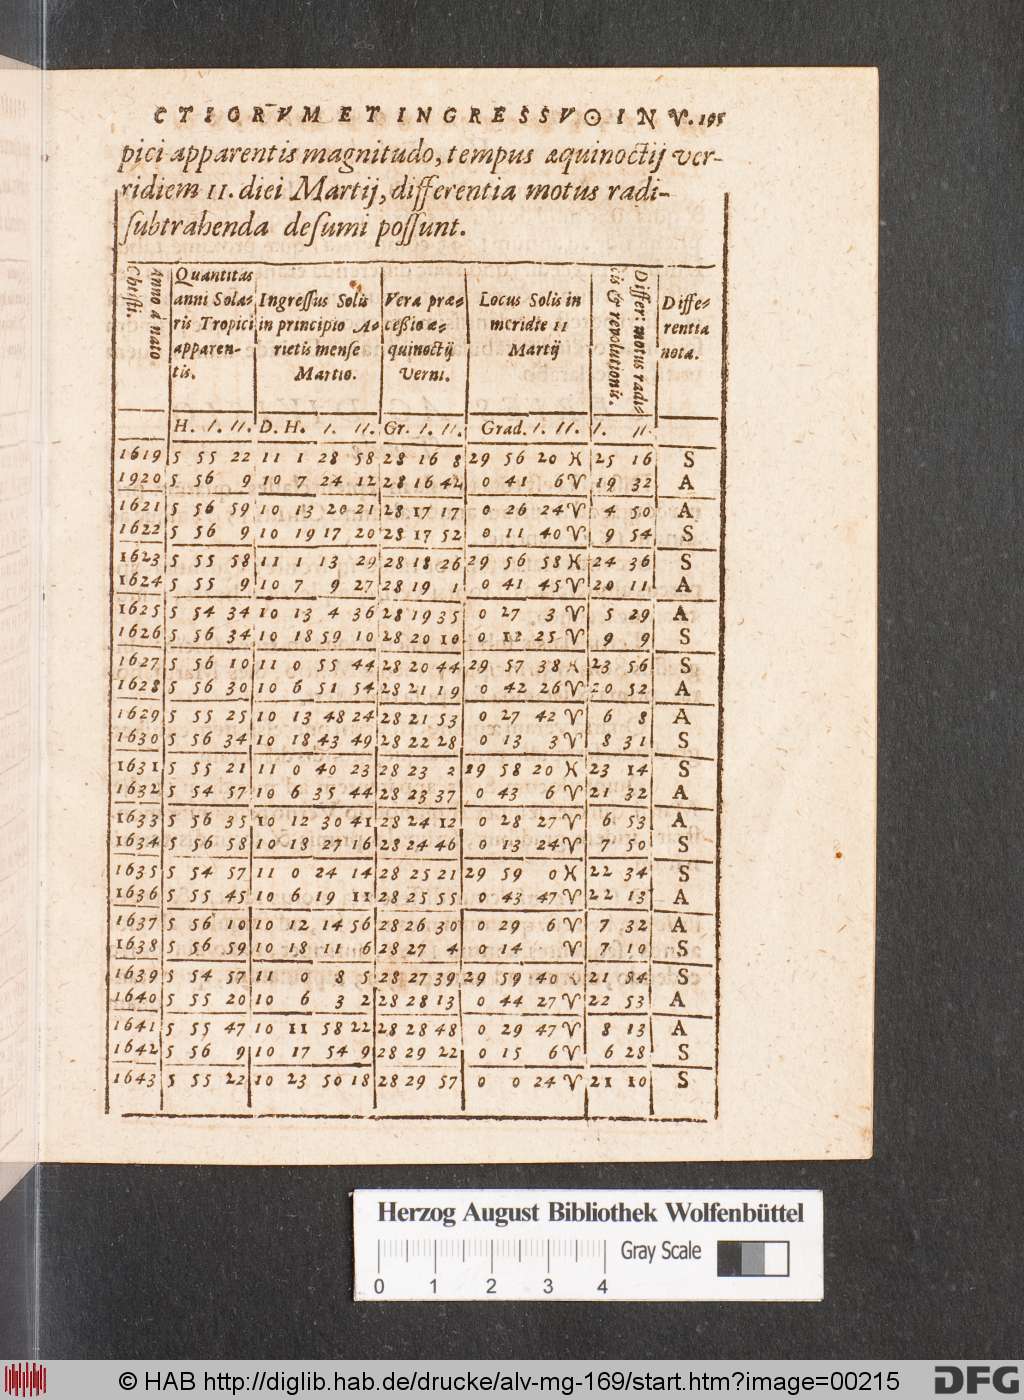 CTIORVM ET INGRESSV ☉ IN ♈. 195
pici apparentis magnitudo, tempus æquinoctij ver-
ridiem 11. diei Martij, differentia motus radi-
subtrahenda desumi possunt.
Anno á nato Christi. | Quantitas anni Sola- ris Tropici apparen- tis. | Ingressus Solis in principio A- rietis mense Martio. | Vera præ- ceßio æ- quinoctij Verni. | Locus Solis in meridie 11 Martij | Differ: motus radi- cis & revolutionis. | Diffe- rentia nota.
H. I. II. D. H. I. II. Gr. I. II. Grad. I. II. I. II.
1619 5 55 22 11 1 28 58 28 16 8 29 56 20 ♓ 25 16 S
1920 5 56 9 10 7 24 12 28 16 42 0 41 6 ♈ 19 32 A
1621 5 56 59 10 13 20 21 28 17 17 0 26 24 ♈ 4 50 A
1622 5 56 9 10 19 17 20 28 17 52 0 11 40 ♈ 9 54 S
1623 5 55 58 11 1 13 29 28 18 26 29 56 58 ♓ 24 36 S
1624 5 55 9 10 7 9 27 28 19 1 0 41 45 ♈ 20 11 A
1625 5 54 34 10 13 4 36 28 19 35 0 27 3 ♈ 5 29 A
1626 5 56 34 10 18 59 10 28 20 10 0 12 25 ♈ 9 9 S
1627 5 56 10 11 0 55 44 28 20 44 29 57 38 ♓ 23 56 S
1628 5 56 30 10 6 51 54 28 21 19 0 42 26 ♈ 20 52 A
1629 5 55 25 10 13 48 24 28 21 53 0 27 42 ♈ 6 8 A
1630 5 56 34 10 18 43 49 28 22 28 0 13 3 ♈ 8 31 S
1631 5 55 21 11 0 40 23 28 23 2 29 58 20 ♓ 23 14 S
1632 5 54 57 10 6 35 44 28 23 37 0 43 6 ♈ 21 32 A
1633 5 56 35 10 12 30 41 28 24 12 0 28 27 ♈ 6 53 A
1634 5 56 58 10 18 27 16 28 24 46 0 13 24 ♈ 7 50 S
1635 5 54 57 11 0 24 14 28 25 21 29 59 0 ♓ 22 34 S
1636 5 55 45 10 6 19 11 28 25 55 0 43 47 ♈ 22 13 A
1637 5 56 10 10 12 14 56 28 26 30 0 29 6 ♈ 7 32 A
1638 5 56 59 10 18 11 6 28 27 4 0 14 ♈ 7 10 S
1639 5 54 57 11 0 8 5 28 27 39 29 59 40 21 54 S
1640 5 55 20 10 6 3 2 28 28 13 0 44 27 ♈ 22 53 A
1641 5 55 47 10 11 58 22 28 28 48 0 29 47 ♈ 8 13 A
1642 5 56 9 10 17 54 9 28 29 22 0 15 6 ♈ 6 28 S
1643 5 55 22 10 23 50 18 28 29 57 0 0 24 ♈ 21 10 S
Herzog August Bibliothek Wolfenbüttel
Gray Scale
0 1 2 3 4
© HAB http://diglib.hab.de/drucke/alv-mg-169/start.htm?image=00215
DFG